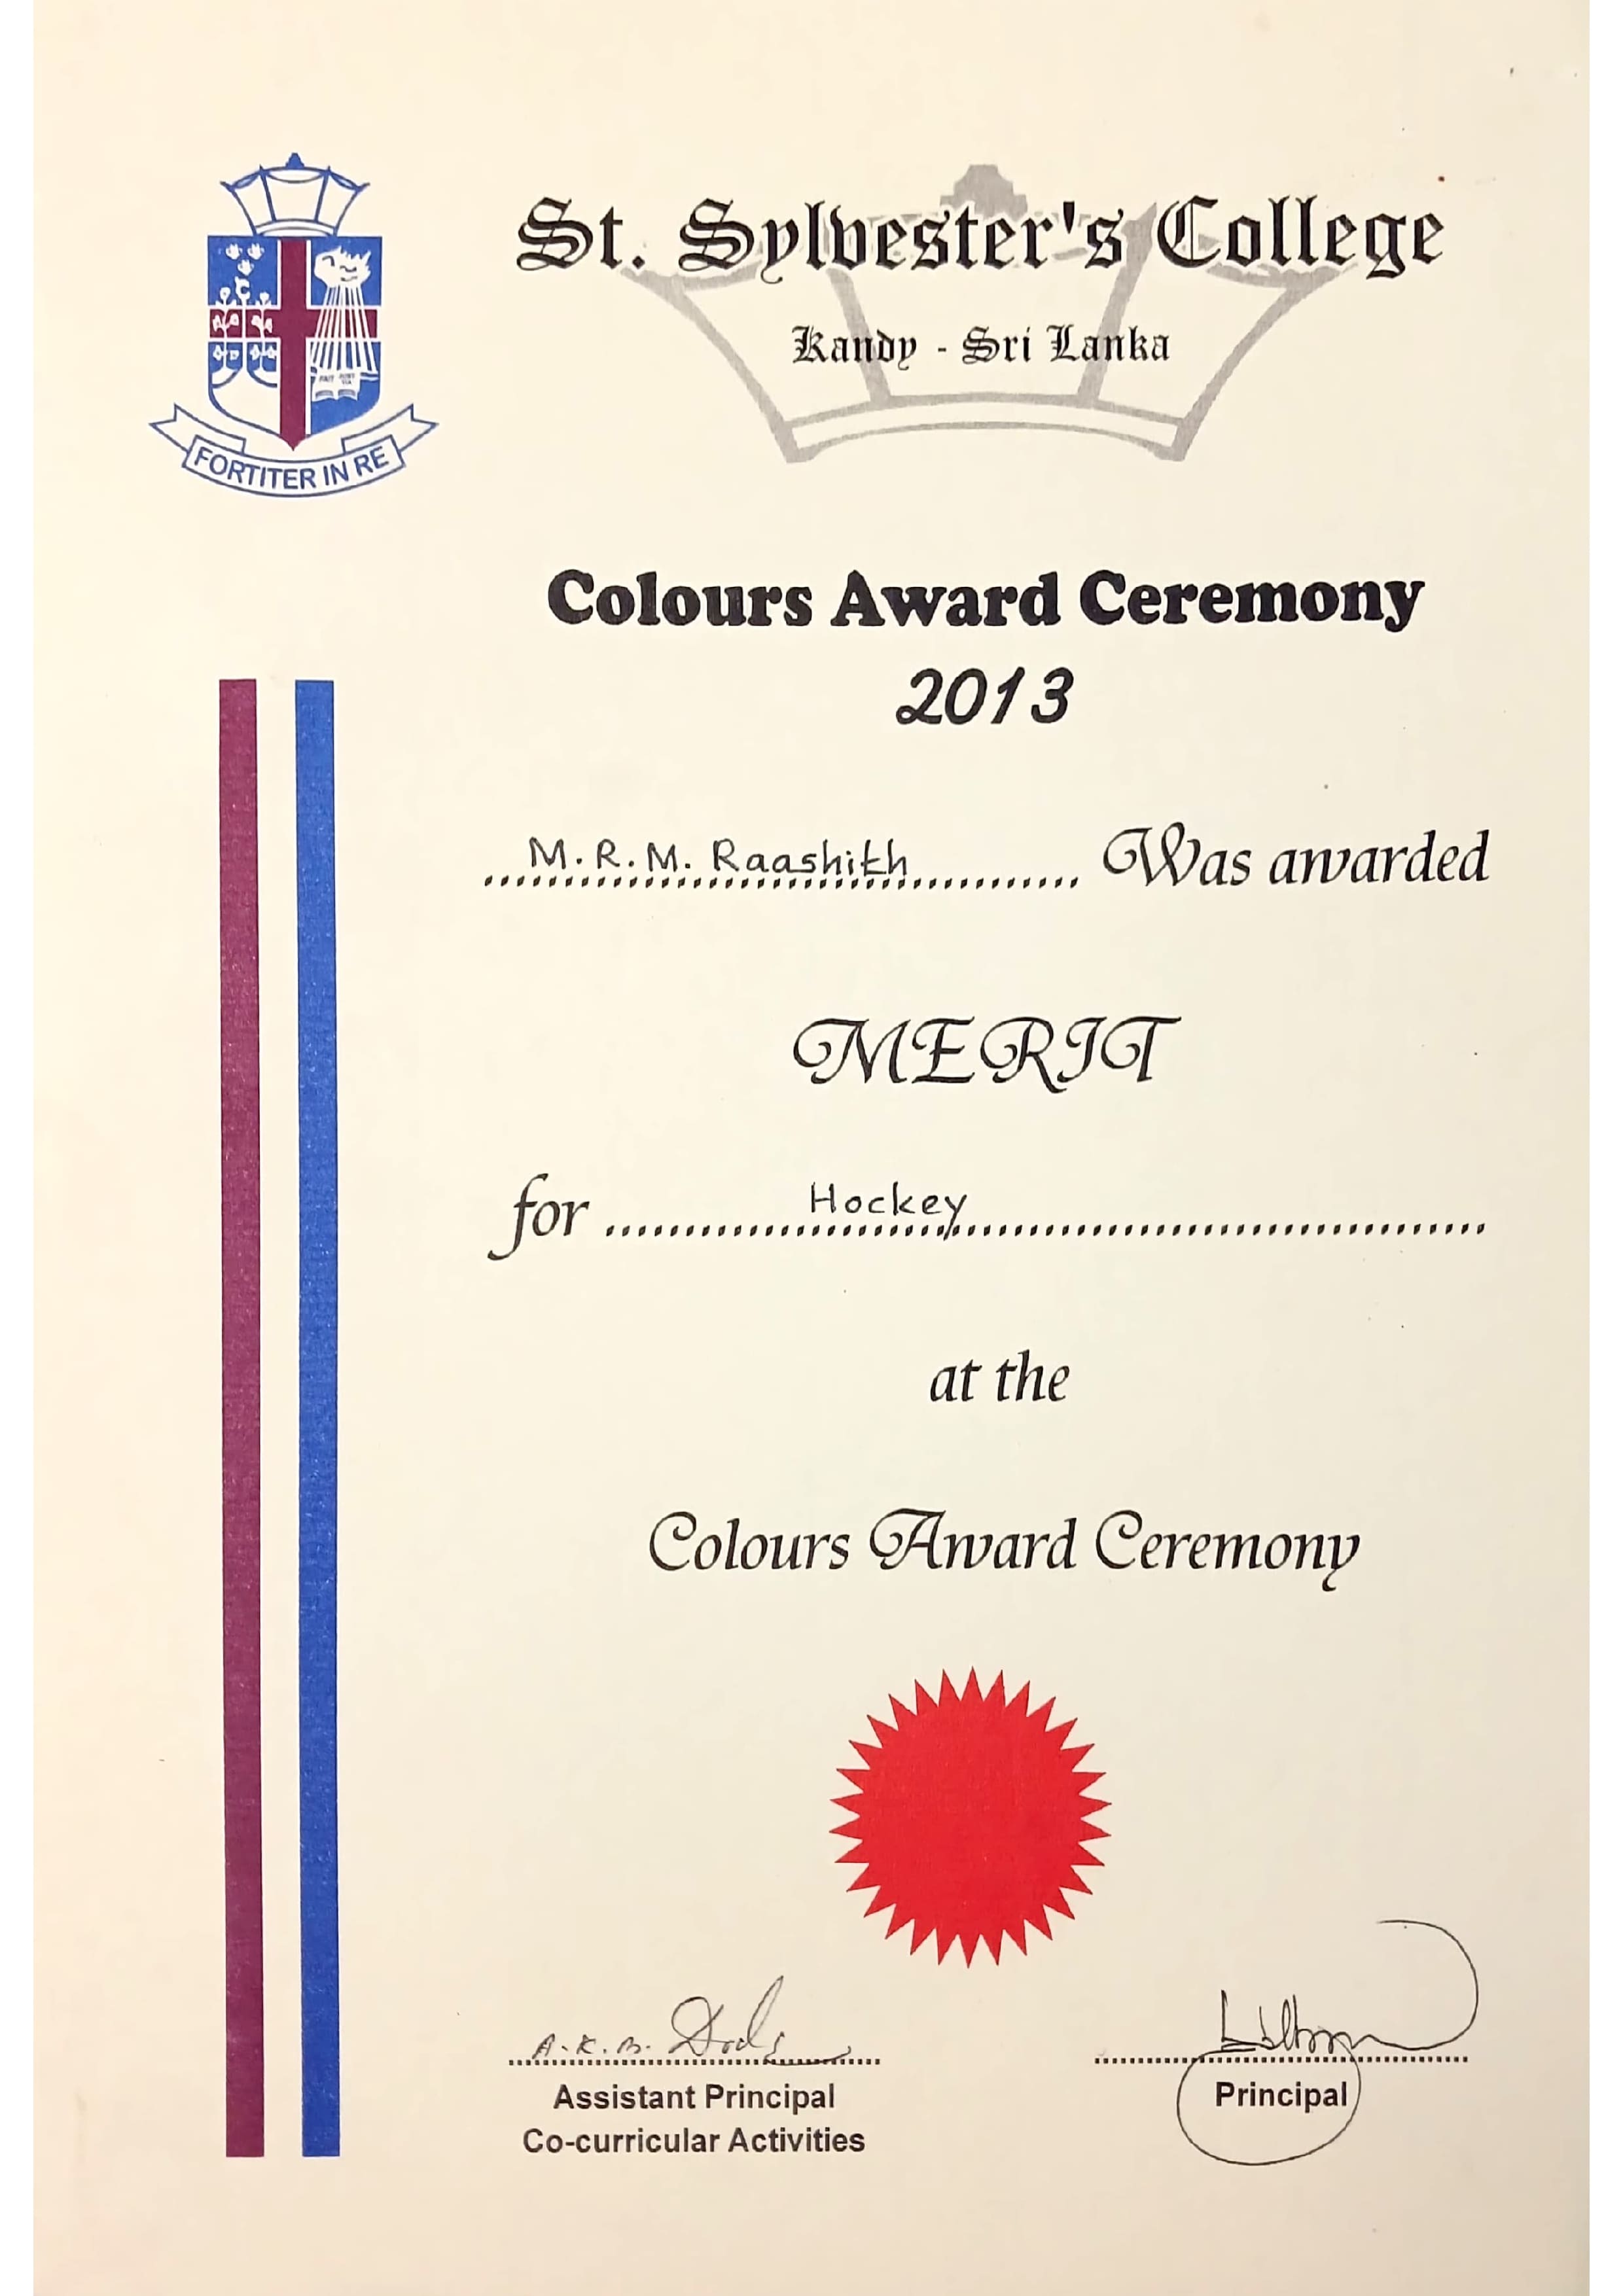 St. Sylvester's College
Kandy - Sri Lanka
FORTITER IN RE
Colours Award Ceremony
2013
M.R.M. Raashith Was awarded
MERIT
for Hockey
at the
Colours Award Ceremony
A.K.B.
Assistant Principal
Co-curricular Activities
Principal